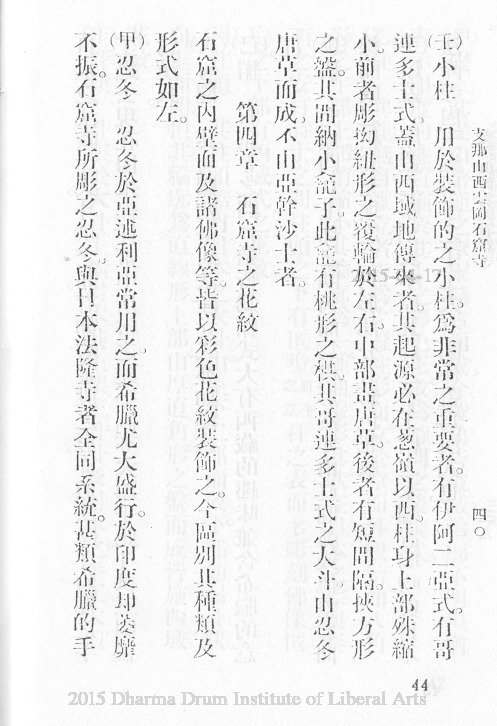 支那山西雲岡石窟寺
四〇
(壬)小柱 用於裝飾的之小柱。爲非常之重要者。有伊阿二亞式。有哥
連多士式。蓋由西域地傳來者。其起源必在葱嶺以西。柱身上部殊縮
小。前者彫拗紐形之覆輪於左右。中部畫唐草。後者有短間隔。挾方形
之盤。其間納小龕子。此龕有桃形之栱。其哥連多士式之大斗。由忍冬
唐草而成。不由亞幹沙士者。
第四章 石窟寺之花紋
石窟之內壁面及諸佛像等。皆以彩色花紋裝飾之。今區別其種類及
形式如左。
(甲)忍冬 忍冬於亞述利亞常用之。而希臘尤大盛行。於印度却萎靡
不振。石窟寺所彫之忍冬。與日本法隆寺者全同系統。甚類希臘的手
44
2015 Dharma Drum Institute of Liberal Arts